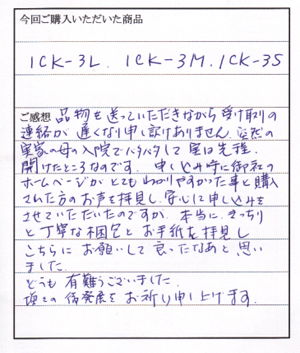 今回ご購入いただいた商品
1CK-3L. 1CK-3M. 1CK-3S
ご感想 品物を送っていただきながら受け取りの
連絡が遅くなり申し訳ありません。突然の
実家の母の入院でバタバタして実は先程、
開けたところなのです。申し込み時に御社の
ホームページがとてもわかりやすかった事と購入
された方のお声を拝見し、安心に申し込みを
させていただいたのですが、本当に、きっちり
と丁寧な梱包とお手紙を拝見し
こちらにお願いして良かったなあと思い
ました。
どうも有難うございました。
益々の御発展をお祈り申し上げます。